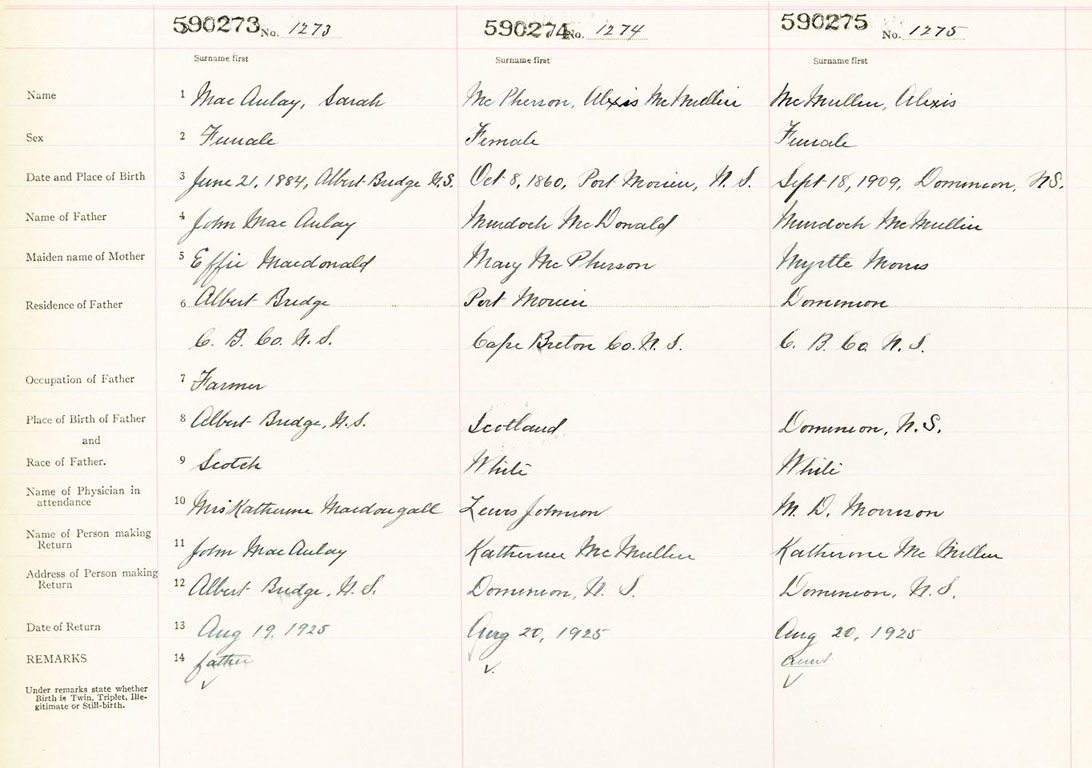 590273 No. 1273 590274 No. 1274 590275 No. 1275
Surname first Surname first Surname first
Name 1 Mac Aulay, Sarah Mc Pherson, Alexis McMullin McMullin, Alexis
Sex 2 Female Female Female
Date and Place of Birth 3 June 21, 1884, Albert Bridge N.S. Oct 8, 1860, Port Morien, N. S. Sept 18, 1909, Dominion, N.S.
Name of Father 4 John Mac Aulay Murdoch McDonald Murdoch McMullin
Maiden name of Mother 5 Effie Macdonald Mary Mc Pherson Myrtle Morris
Residence of Father 6 Albert Bridge Port Morien Dominion
C. B. Co. N. S. Cape Breton Co. N. S. C. B. Co. N. S.
Occupation of Father 7 Farmer
Place of Birth of Father 8 Albert Bridge, N.S. Scotland Dominion, N.S.
and
Race of Father. 9 Scotch White White
Name of Physician in attendance 10 Mrs Katherine Macdougall Lewis Johnson M. D. Morrison
Name of Person making Return 11 John MacAulay Katherine McMullin Katherine Mc Mullin
Address of Person making Return 12 Albert Bridge, N.S. Dominion, N. S. Dominion, N.S.
Date of Return 13 Aug 19, 1925 Aug 20, 1925 Aug 20, 1925
REMARKS 14 father aunt
Under remarks state whether
Birth is Twin, Triplet, Ille-
gitimate or Still-birth.